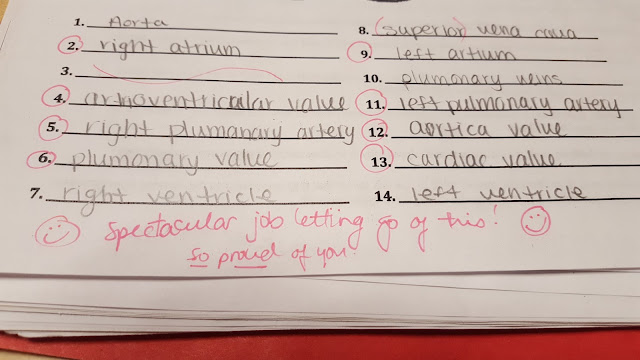 1. Aorta
2. right atrium
3.
4. artrioventricular value
5. right plumanary artery
6. plumonary value
7. right ventricle
8. (superior) vena cava
9. left artium
10. plumonary veins
11. left pulmonary artery
12. aortica value
13. cardiac value
14. left ventricle
Spectacular job letting go of this!
so proud of you!